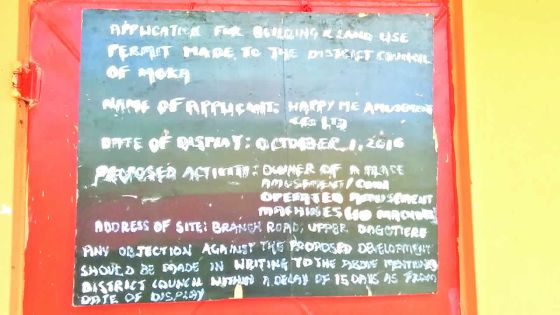 APPLICATION FOR BUILDING & LAND USE
PERMIT MADE TO THE DISTRICT COUNCIL
OF MOKA
NAME OF APPLICANT: HAPPY ME AMUSEMENT
CO LTD
DATE OF DISPLAY: OCTOBER 1, 2016
PROPOSED ACTIVITY: OWNER OF A
AMUSEMENT/COIN
OPERATED AMUSEMENT
MACHINES (10 MACHINES)
ADDRESS OF SITE: BRANCH ROAD, UPPER DAGOTIERE
ANY OBJECTION AGAINST THE PROPOSED DEVELOPMENT
SHOULD BE MADE IN WRITING TO THE ABOVE MENTIONED
DISTRICT COUNCIL WITHIN A DELAY OF 15 DAYS AS FROM
DATE OF DISPLAY